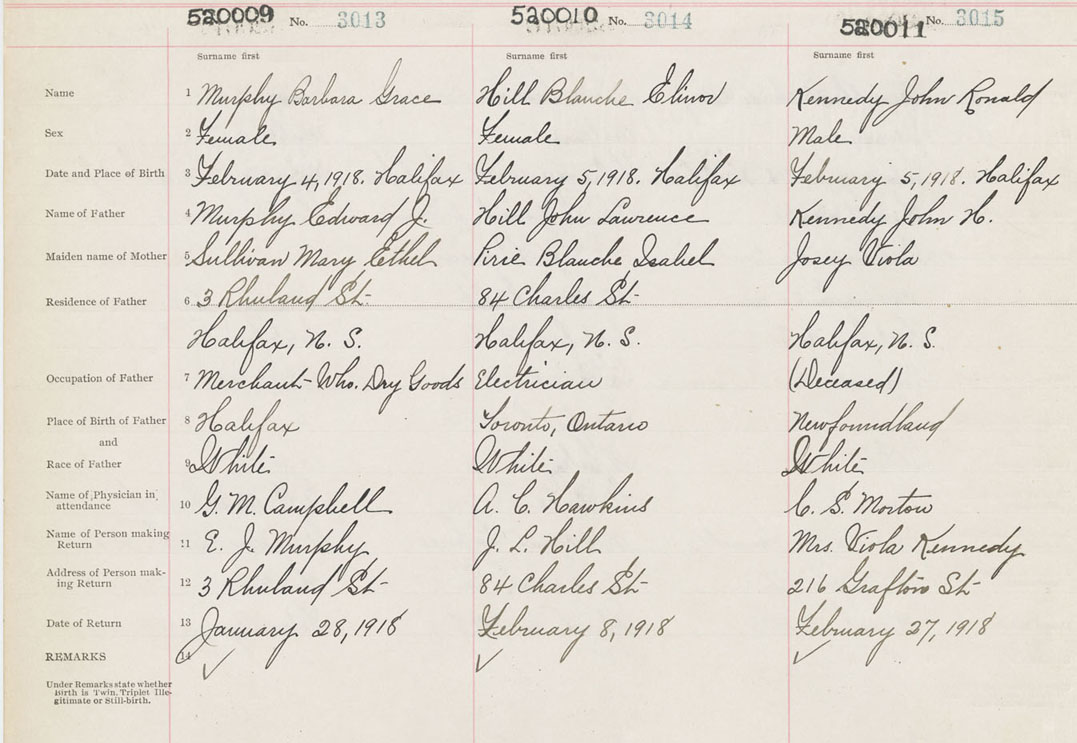 520009 No. 3013 520010 No. 3014 520011 No. 3015
Surname first Surname first Surname first
Name 1 Murphy Barbara Grace Hill Blanche Elinor Kennedy John Ronald
Sex 2 Female Female Male
Date and Place of Birth 3 February 4, 1918. Halifax February 5, 1918. Halifax February 5, 1918. Halifax
Name of Father 4 Murphy Edward J. Hill John Lawrence Kennedy John H.
Maiden name of Mother 5 Sullivan Mary Ethel Pirie Blanche Isabel Josey Viola
Residence of Father 6 3 Rhuland St. 84 Charles St.
Halifax, N. S. Halifax, N. S. Halifax, N. S.
Occupation of Father 7 Merchant-Who. Dry Goods Electrician (Deceased)
Place of Birth of Father 8 Halifax Toronto, Ontario Newfoundland
and
Race of Father 9 White White White
Name of Physician in attendance 10 G. M. Campbell A. C. Hawkins C. S. Morton
Name of Person making Return 11 E. J. Murphy J. L. Hill Mrs. Viola Kennedy
Address of Person mak-ing Return 12 3 Rhuland St 84 Charles St 216 Grafton St
Date of Return 13 January 28, 1918 February 8, 1918 February 27, 1918
REMARKS 14
Under Remarks state whether
Birth is Twin, Triplet Ille-
gitimate or Still-birth.